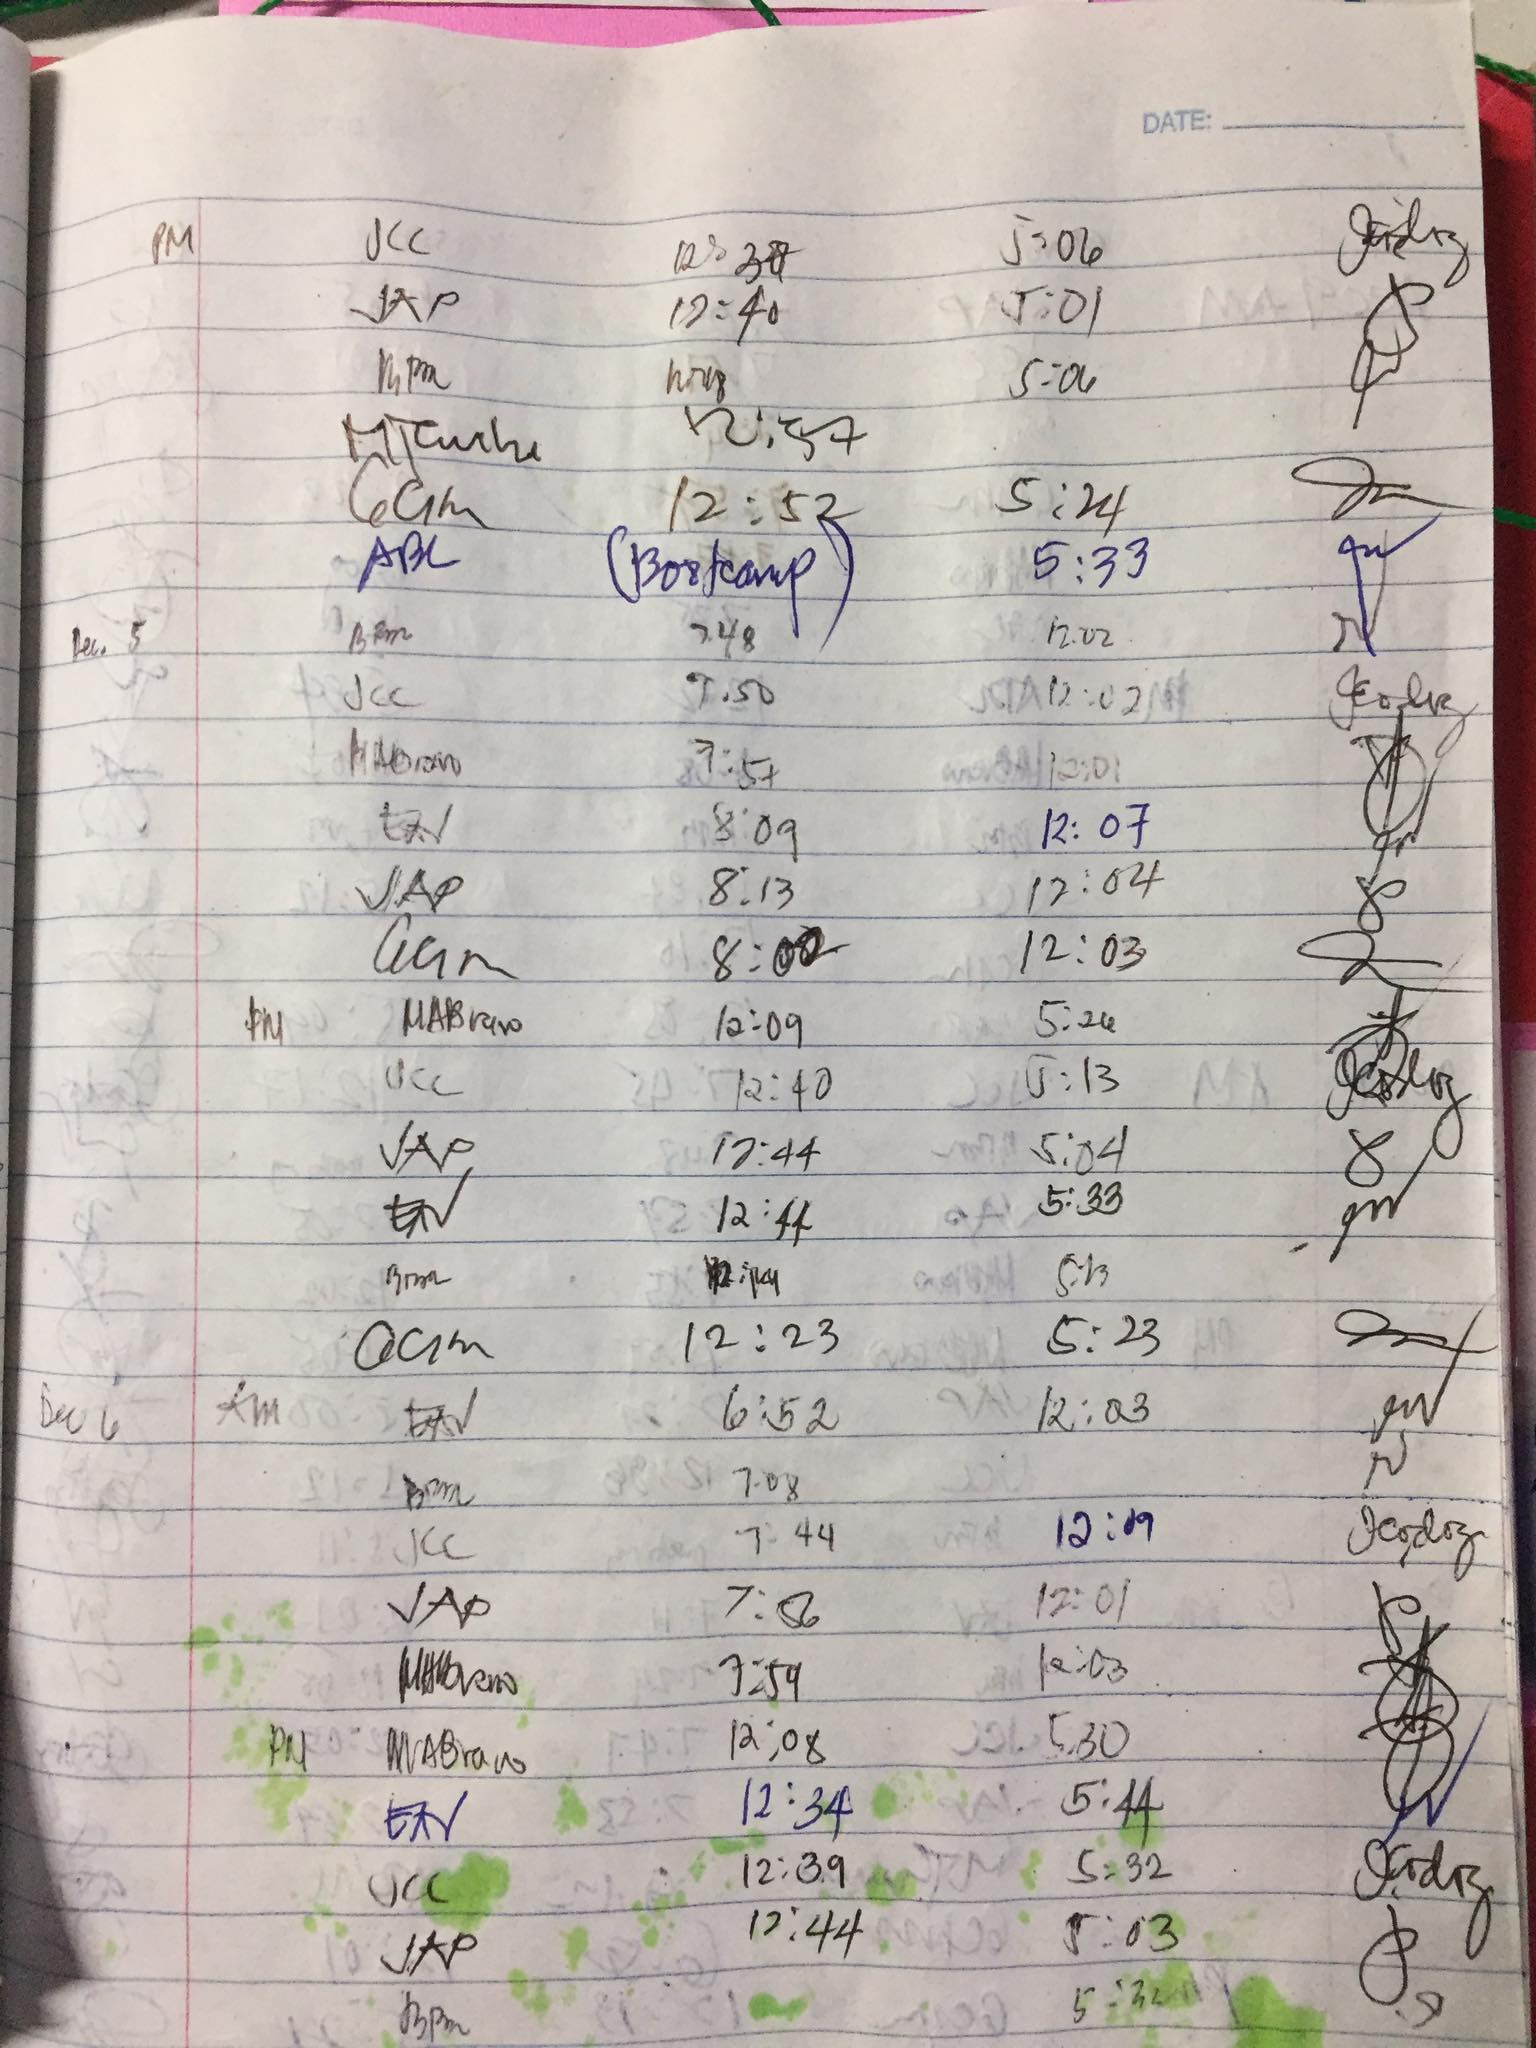 DATE:
PM JCC 12:38 5:06
JAP 12:40 5:01
BPm 5:06
12:57
GCim 12:52 5:24
ABL (Bootcamp) 5:33
Dec. 5 BPm 7.48 12.02
JCC 7.50 12:02 Jcordoz
MABravo 7:57 12:01
EAV 8:09 12:07
JAP 8:13 12:04
GCim 8:02 12:03
PM MABravo 12:09 5:26
JCC 12:40 5:13 Jcordoz
JAP 12:44 5:04
EAV 12:44 5:33
BPm 5:13
GCim 12:23 5:23
Dec 6 AM EAV 6:52 12:03
BPm 7.08
JCC 7:44 12:09 Jcordoz
JAP 12:01
MABravo 7:59 12:03
PM MABravo 12:08 5.30
EAV 12:34 5:44
JCC 12:39 5:32 Jcordoz
JAP 12:44 5:03
BPm 5:32